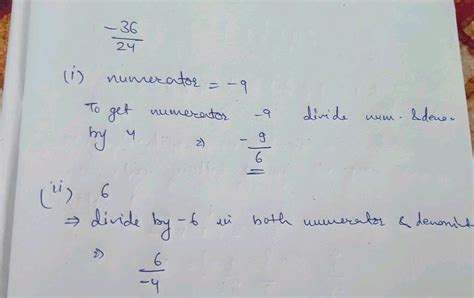 -36
24
(i) numerator = -9
To get numerator -9 divide num. & deno.
by 4 ⇒ -9
6
(ii) 6
⇒ divide by -6 in both numerator & denomint
⇒ 6
-4